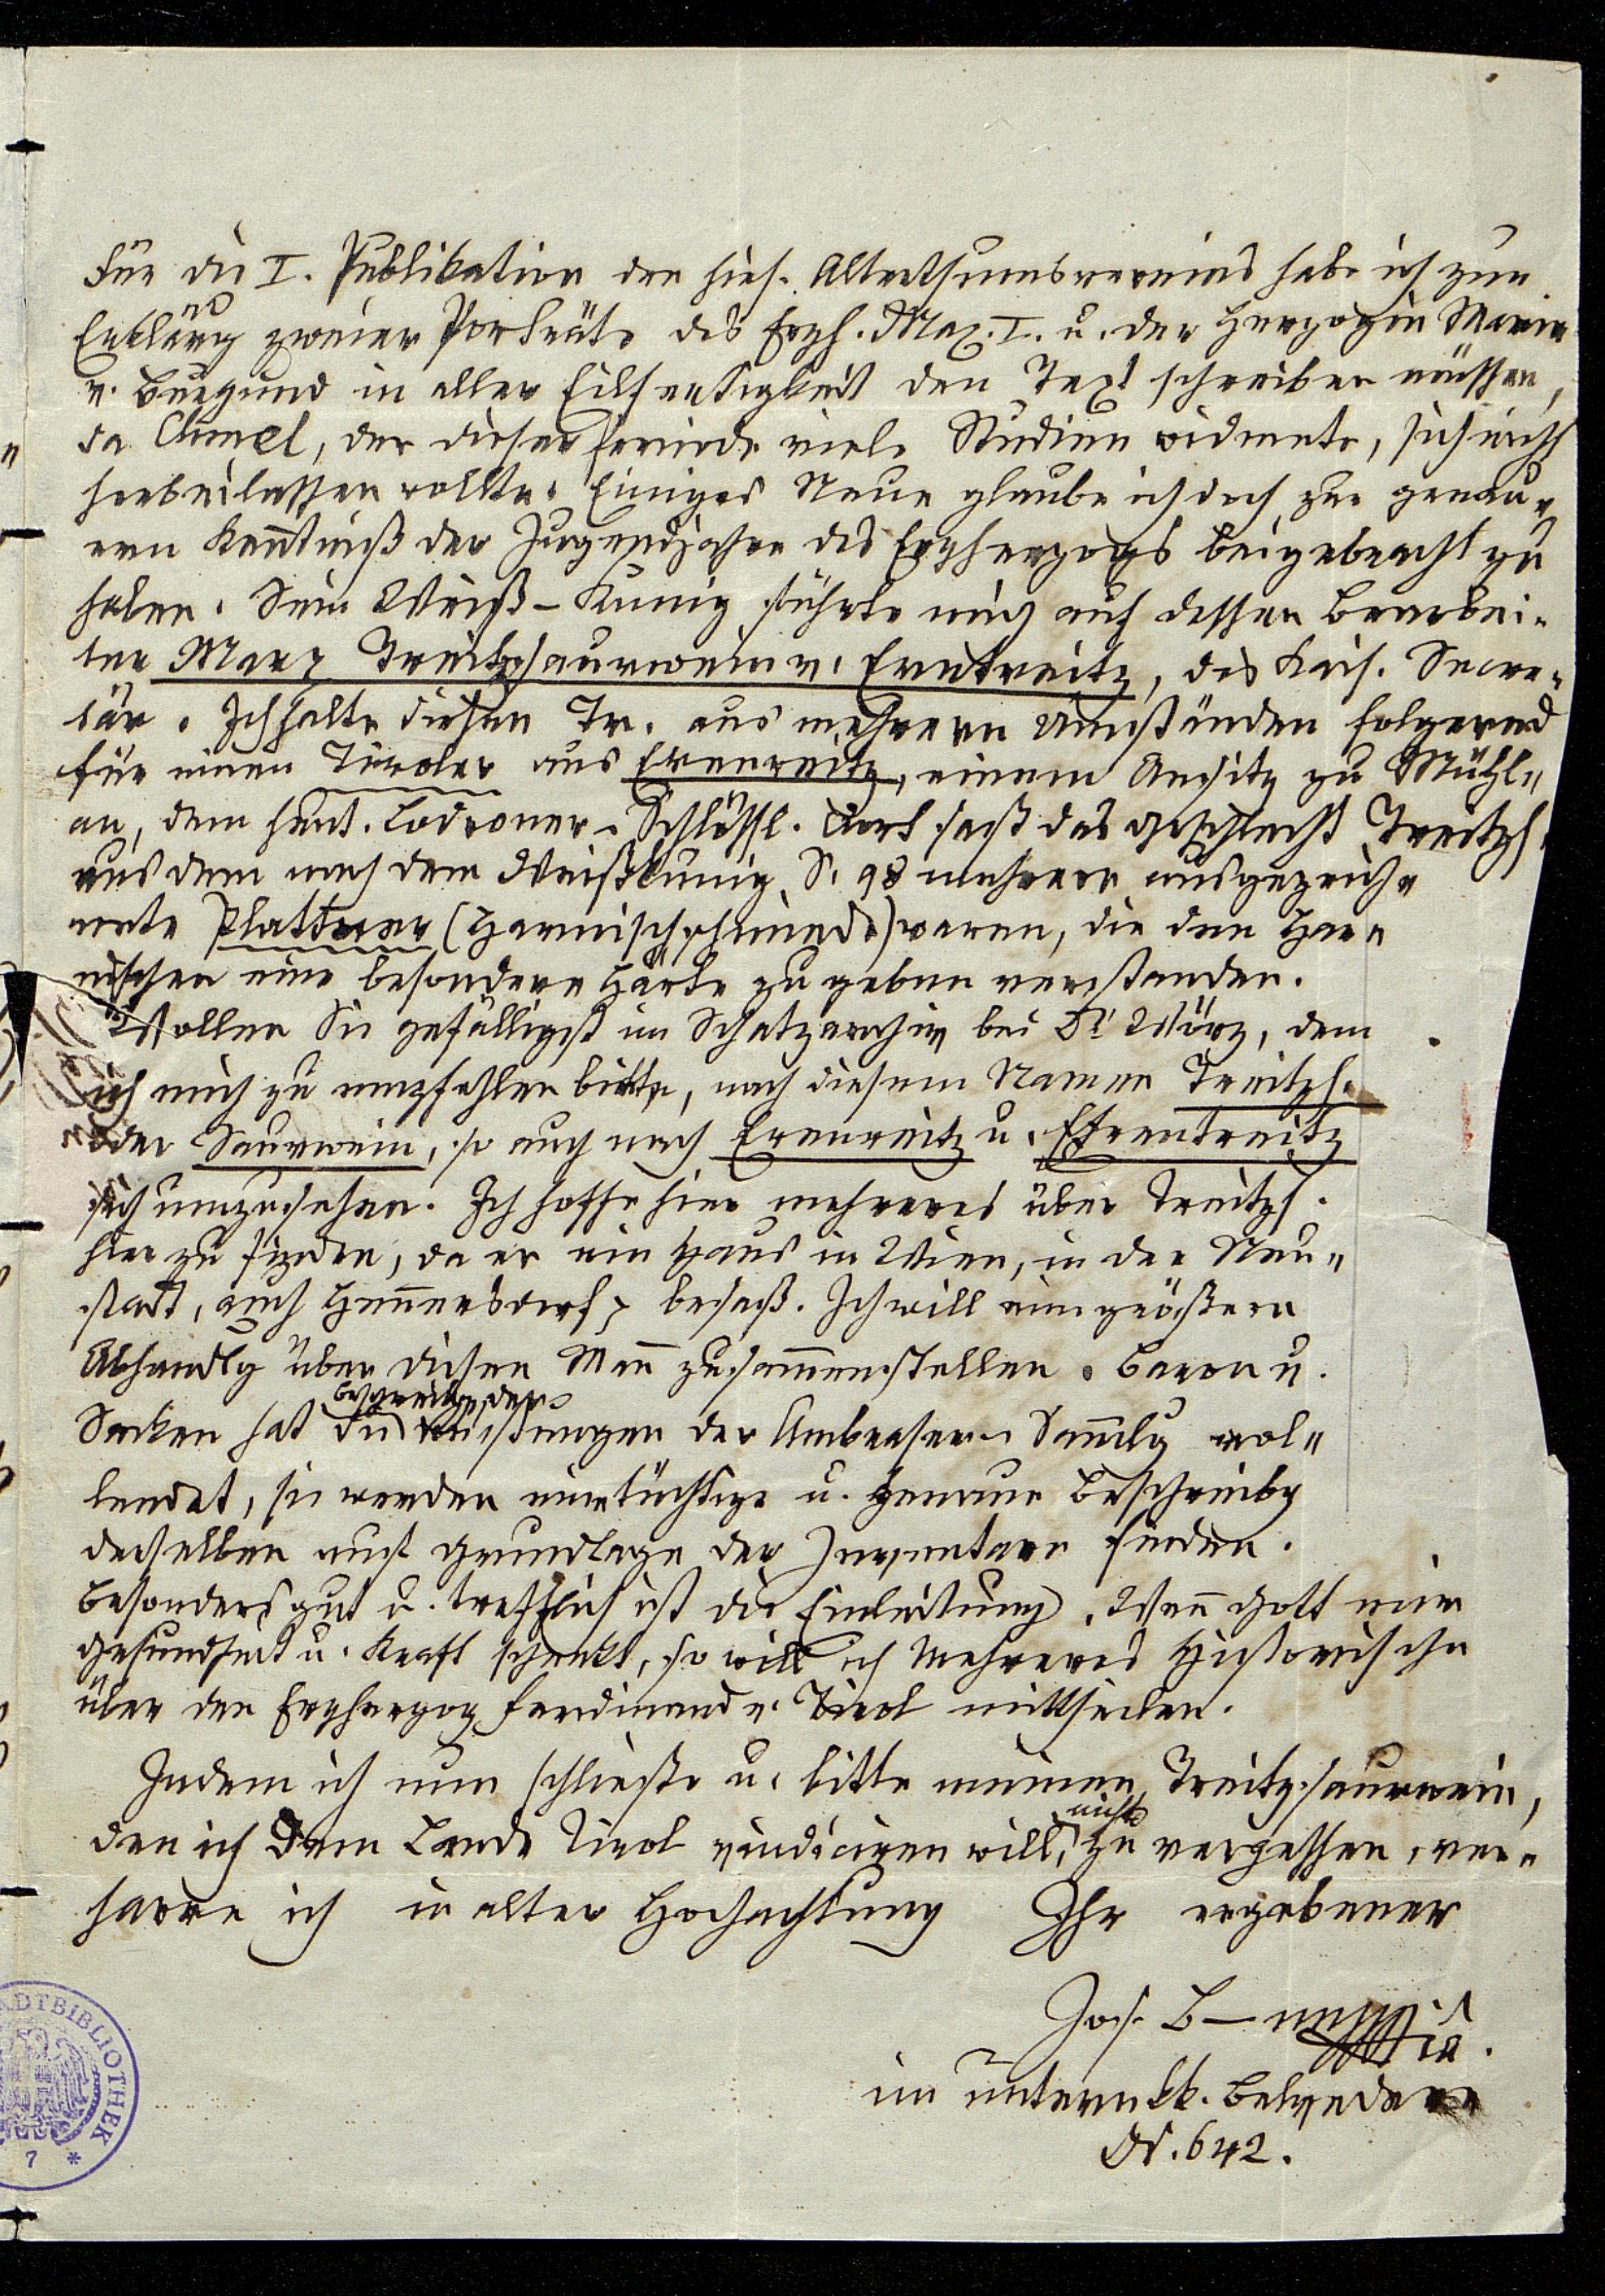 Für die I. Publikation des hies. Alterthumsvereins habe ich zur
Erklärung zweier Porträte des Erzh. Max. I. u. der Herzogin Maria
v. Burgund in aller Eilfertigkeit den Text schreiben müssen,
da Chmel, der dieser Periode viele Studien widmete, sich nicht
herbeilassen wollte. Einiges Neue glaube ich doch zur genau„
ern Kenntniß der Jugendjahre des Erzherzogs beigebracht zu
haben. Sein Weiß-Kunig führte mich auf dessen Bearbei„
ter Marx Treitzsaurwein v. Erntreitz, des Kais. Secre„
tär. Ich halte diesen Tr. aus mehrern Umständen folgernd
für einen Tiroler aus Erenreitz, einem Ansitz zu Mühl„
au, dem heut. Lodroner-Schlössl. Dort saß das Geschlecht Treitzs.
aus dem nach dem Weißkunig S. 98 mehrere ausgezeich„
nete Plattner (Harnischschmiede) waren, die den Har„
nischen eine besondere Härte zu geben verstanden.
Wollen Sie gefälligst im Schatzarchiv bei Dr Würz, dem
ich mich zu empfehlen bitte, nach diesem Namen Treitzs.
oder Saurwein, so auch nach Erenreitz u. Ehrentreitz
sich umzusehen. Ich hoffe hier mehreres über Treitzs.
hier zu finden, da er ein Haus in Wien, in der Neu„
stadt, auch Hennersdorf besaß. Ich will eine größere
Abhandlg über diesen Mann zusammenstellen. Baron v.
Sacken hat die Beschreibg der Rüstungen der Ambraser-Sammlg vol„
lendet, sie werden eine tüchtige u. genaue Beschreibg
derselben auf Grundlage der Inventare finden.
Besonders gut u. trefflich ist die Einleitung. Wenn Gott mir
Gesundheit u. Kraft schenkt, so will ich Mehreres Historische
über den Erzherzog Ferdinand v. Tirol mittheilen.
Indem ich nun schließe u. bitte meinen Treitzsaurwein,
den ich dem Lande Tirol vindiciren will, nicht zu vergessen, ver„
harre ich in alter Hochachtung Ihr ergebener
Jos. Bergmann
im untern kk. Belvedere
N. 642.
STADTBIBLIOTHEK
7 *